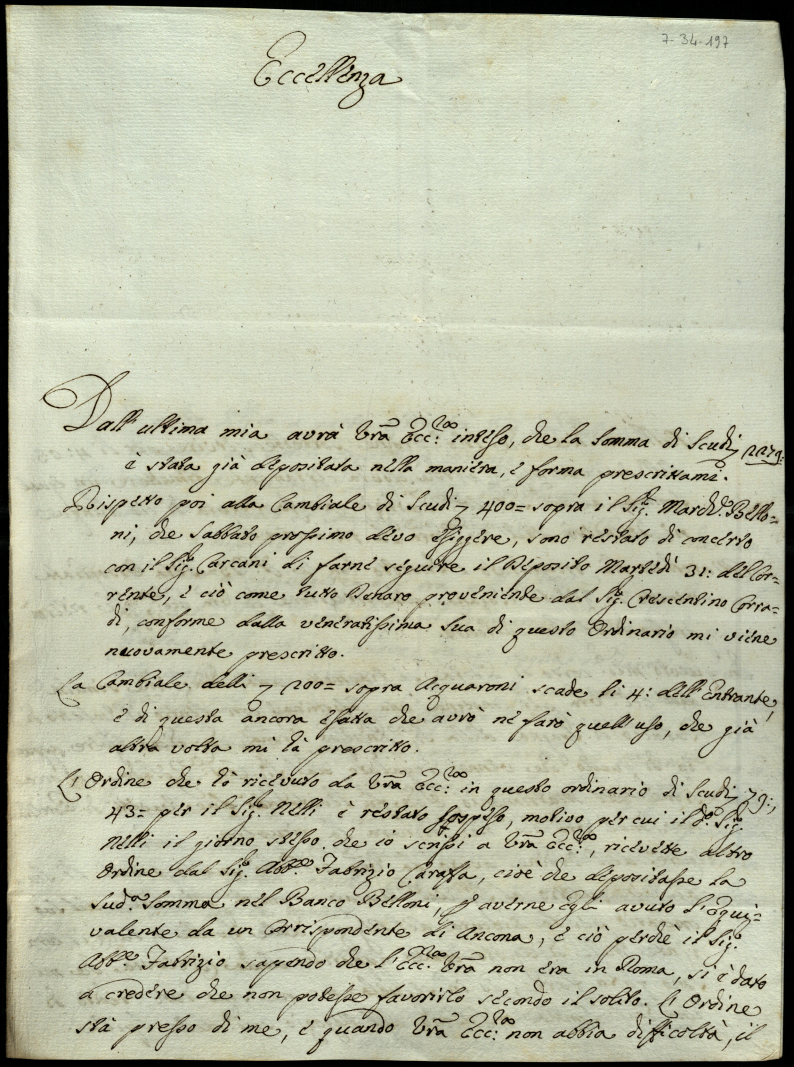 7-34-197
Eccellenza
Dall'ultima mia avrà Vrā Ecc:za inteso, che la somma di Scudi 2279:
è stata già depositata nella maniera, e forma prescrittami.
Rispetto poi alla Cambiale di Scudi 400= sopra il Sig.r March.e Bello=
ni, che Sabbato prossimo devo esiggere, sono restato di concerto
con il Sig.r Carcani di farne seguire il Deposito Martedì 31: del Cor=
rente, e ciò come tutto Denaro proveniente dal Sig.r Crescentino Corra=
di, conforme dalla veneratissima Sua di questo Ordinario mi viene
nuovamente prescritto.
La Cambiale delli 200= sopra Acquaroni scade li 4: dell'Entrante,
e di questa ancora esatta che avrò ne farò quell'uso, che già
altra volta mi hà prescritto.
L'Ordine che hò ricevuto da Vrā Ecc:za in questo ordinario di Scudi 79:,
43= per il Sig.r Nelli è restato sospeso, motivo per cui il d.o Sig.r
Nelli il giorno stesso, che io scrissi a Vrā Ecc:za, ricevette altro
Ordine dal Sig.r Abb.e Fabrizio Caraffa, cioè che depositasse la
Sud.a Somma nel Banco Belloni, p averne Egli avuto l'equi=
valente da un Corrispondente di Ancona, e ciò perchè il Sig.r
Abb.e Fabrizio sapendo che l'Ecc:za Vrā non era in Roma, si è dato
a credere che non potesse favorirlo secondo il solito. L'Ordine
stà presso di me, e quando Vrā Ecc:za non abbia difficoltà, il